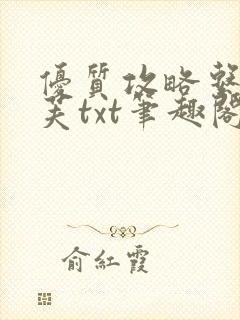 優質攻略整
芙txt筆趣閣
俞紅霞